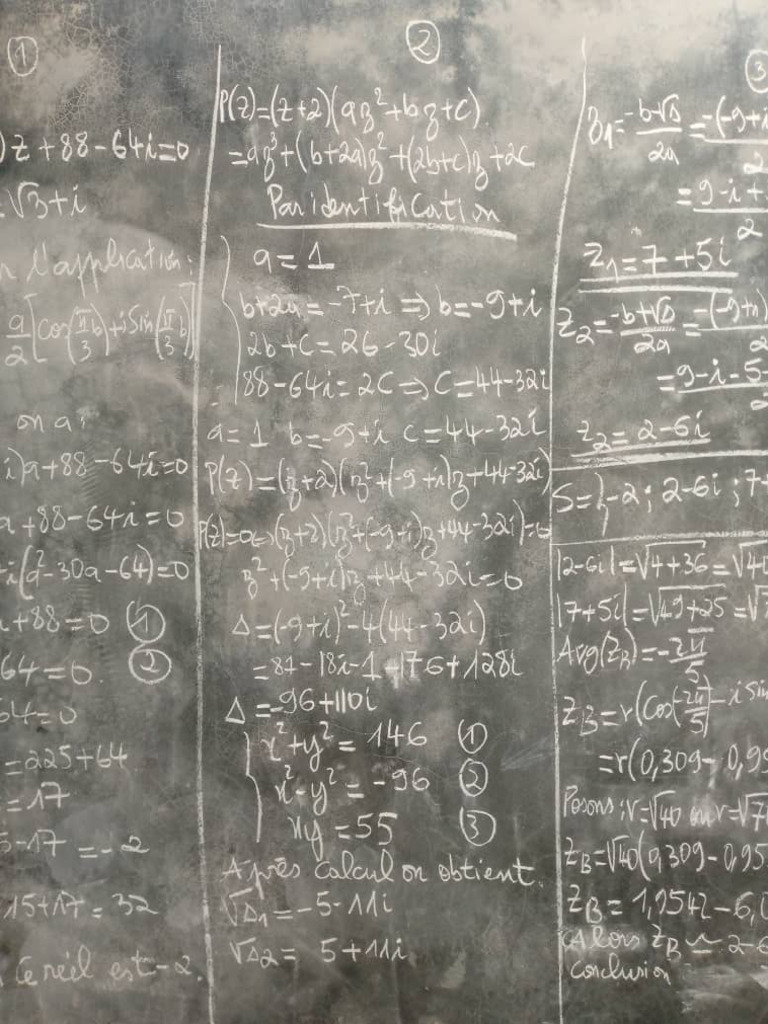 ①
)z + 88 - 64i = 0
= √3 + i
l'application:
a/2 [cos(π/3 b) + i sin(π/3 b)]
on a:
i)a + 88 - 64i = 0
a + 88 - 64i = 0
i(a² - 30a - 64) = 0
+ 88 = 0 ①
64 = 0. ②
64 = 0
= 225 + 64
= 17
5 - 17 = -2
15 + 17 = 32
Ce réel est -2.
②
P(z) = (z+2)(az² + bz + c)
= az³ + (b+2a)z² + (2b+c)z + 2c
Par identification
a = 1
b + 2a = -7 + i ⇒ b = -9 + i
2b + c = 26 - 30i
88 - 64i = 2c ⇒ c = 44 - 32i
a = 1 b = -9 + i c = 44 - 32i
P(z) = (z+2)(z² + (-9+i)z + 44 - 32i)
P(z) = 0 ⇔ (z+2)(z² + (-9+i)z + 44 - 32i) = 0
z² + (-9+i)z + 44 - 32i = 0
Δ = (-9+i)² - 4(44 - 32i)
= 81 - 18i - 1 - 176 + 128i
Δ = -96 + 110i
x² + y² = 146 ①
x² - y² = -96 ②
xy = 55 ③
Après calcul on obtient.
√Δ1 = -5 - 11i
√Δ2 = 5 + 11i
③
z1 = (-b-√Δ)/2a = -(-9+i
= 9 - i +
2
z1 = 7 + 5i
z2 = (-b+√Δ)/2a = -(-9+i)
= 9 - i - 5 -
z2 = 2 - 6i
S = {-2; 2-6i; 7+
|2-6i| = √4+36 = √40
|7+5i| = √49+25 = √7
Arg(zB) = -2π/5
zB = r(cos(-2π/5) - i sin
= r(0,309 - 0,95
Posons: r = √40 ou r = √7
zB = √40(0,309 - 0,95
zB = 1,9542 - 6,0
Alors zB ≃ 2 - 6
Conclusion